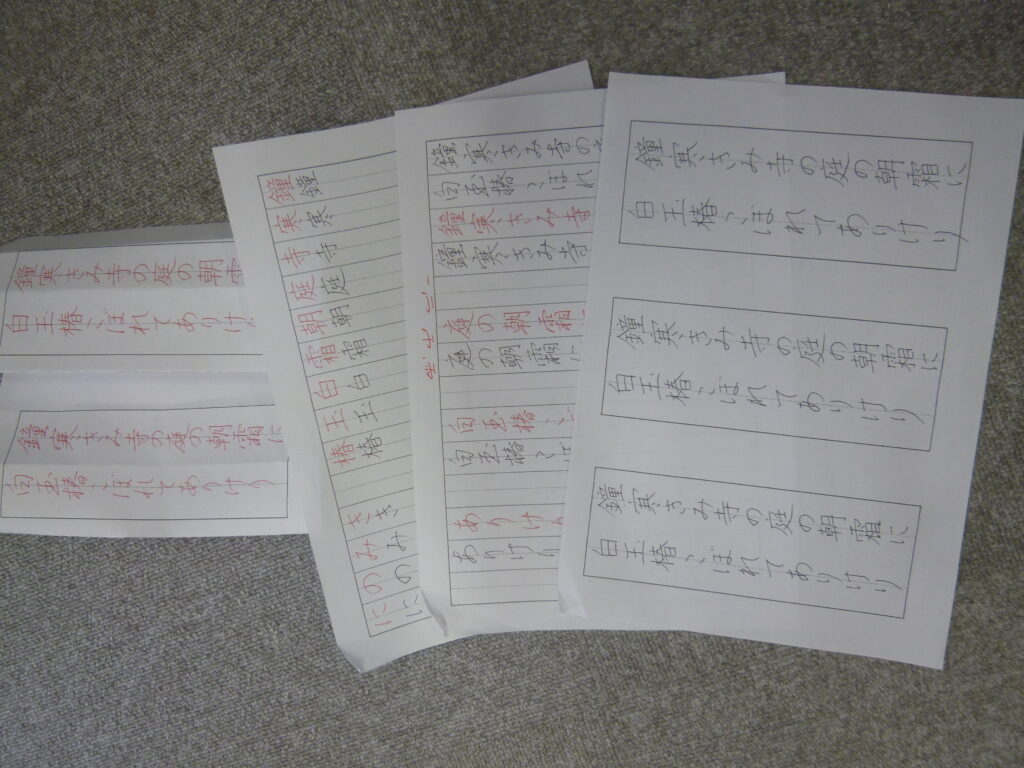 鐘寒きみ寺の庭の朝霜
白玉椿こぼれてありけり
鐘寒きみ寺の庭の朝霜に
白玉椿こぼれてありけり
鐘鐘
寒寒
寺寺
庭庭
朝朝
霜霜
白白
玉玉
椿椿
きき
みみ
にのにの
鐘寒きみ寺の
白玉椿こぼれ
鐘寒きみ寺
鐘寒きみ寺
庭の朝霜
庭の朝霜に
白玉椿こ
白玉椿こ
ありけり
ありけり
鐘寒きみ寺の庭の朝霜に
白玉椿こぼれてありけり
鐘寒きみ寺の庭の朝霜に
白玉椿こぼれてありけり
鐘寒きみ寺の庭の朝霜に
白玉椿こぼれてありけり